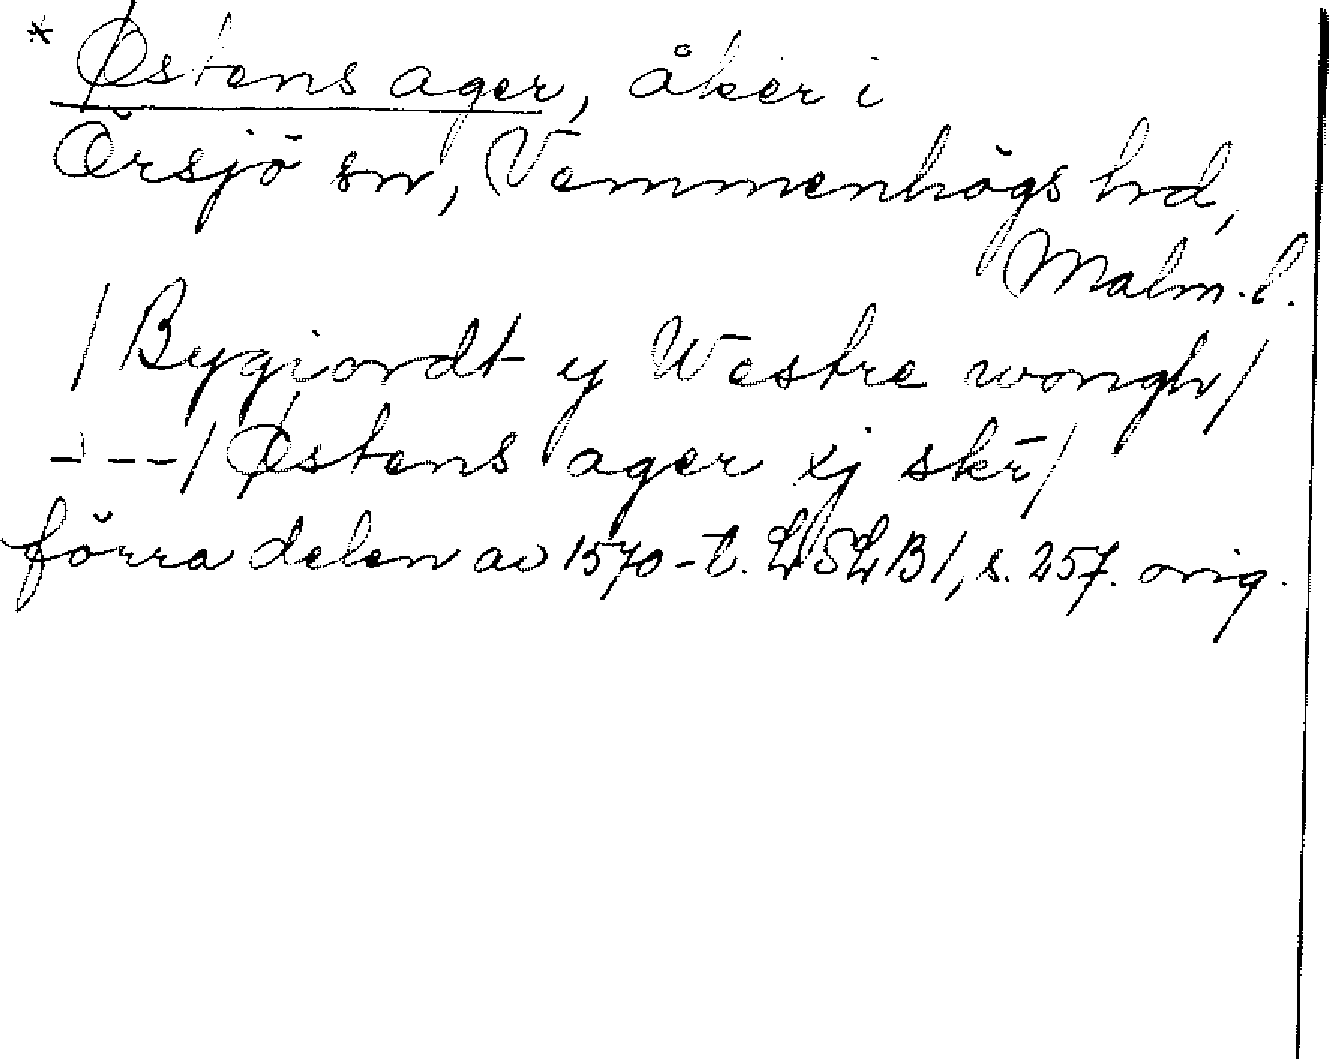 * Østens ager, åker i
Örsjö sn, Vemmenhögs hd,
Malm. l.
/ Bygiordt y Westre wongh /
- - - / Østens ager xj skr̄ /
förra delen av 1570-t. LSLB1, s. 257. orig.